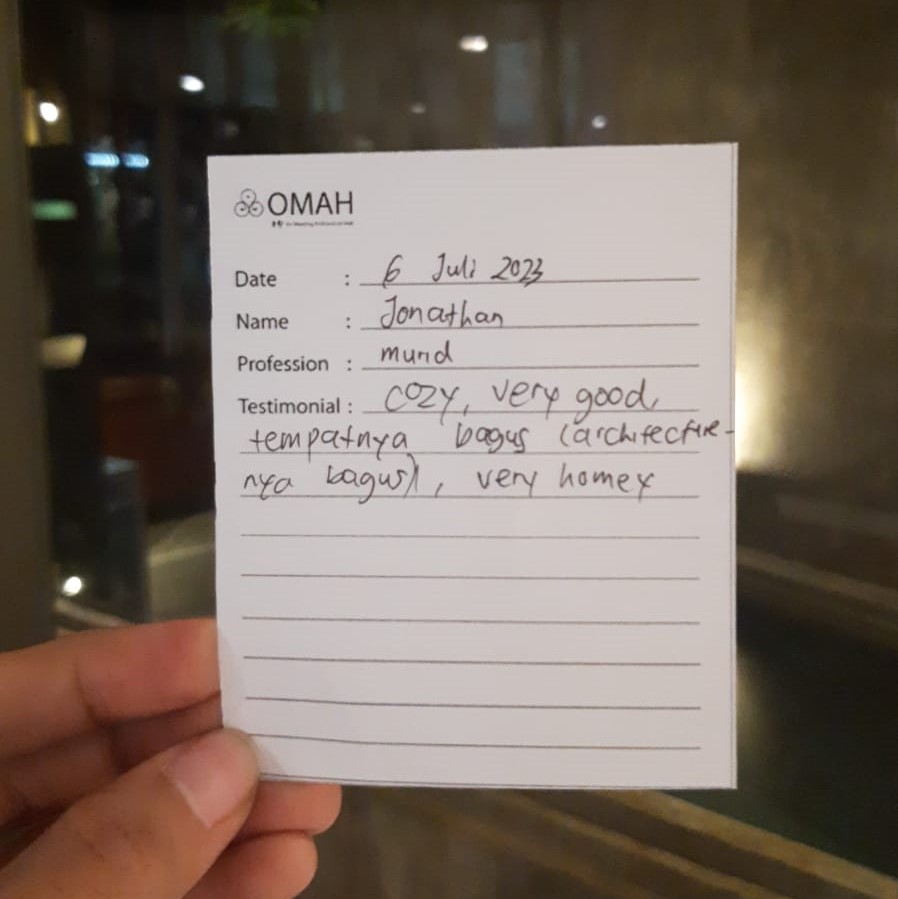 OMAH
Date : 6 Juli 2023
Name : Jonathan
Profession : murid
Testimonial : cozy, very good,
tempatnya bagus (architecture-
nya bagus), very homey